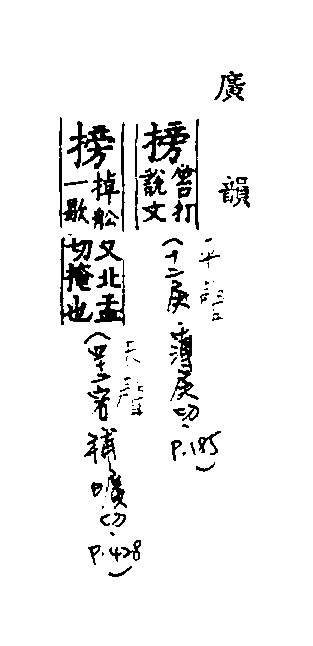 廣韻
搒
笞打
說文
平聲
(十二庚 薄庚切. P.185)
搒
掉船又北孟
一歇切掩也
去聲
(四十二宕 補曠切. P.428)